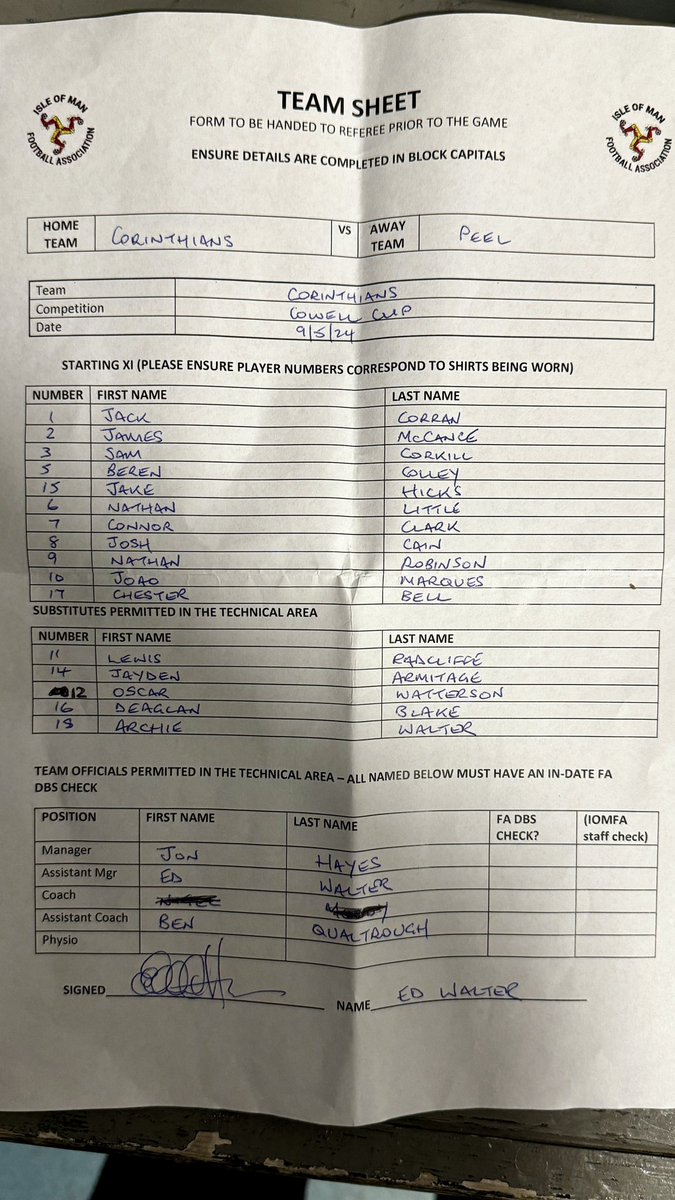 TEAM SHEET
FORM TO BE HANDED TO REFEREE PRIOR TO THE GAME
ENSURE DETAILS ARE COMPLETED IN BLOCK CAPITALS
ISLE OF MAN FOOTBALL ASSOCIATION
ISLE OF MAN FOOTBALL ASSOCIATION
HOME TEAM CORINTHIANS VS AWAY TEAM PEEL
Team CORINTHIANS
Competition COWELL CUP
Date 9/5/24
STARTING XI (PLEASE ENSURE PLAYER NUMBERS CORRESPOND TO SHIRTS BEING WORN)
NUMBER FIRST NAME LAST NAME
1 JACK CORRAN
2 JAMES McCANCE
3 SAM CORKILL
5 BEREN COLLEY
15 JAKE HICKS
6 NATHAN LITTLE
7 CONNOR CLARK
8 JOSH CAIN
9 NATHAN ROBINSON
10 JOAO MARQUES
17 CHESTER BELL
SUBSTITUTES PERMITTED IN THE TECHNICAL AREA
NUMBER FIRST NAME LAST NAME
11 LEWIS RADCLIFFE
14 JAYDEN ARMITAGE
12 OSCAR WATTERSON
16 DEAGLAN BLAKE
18 ARCHIE WALTER
TEAM OFFICIALS PERMITTED IN THE TECHNICAL AREA – ALL NAMED BELOW MUST HAVE AN IN-DATE FA
DBS CHECK
POSITION FIRST NAME LAST NAME FA DBS CHECK? (IOMFA staff check)
Manager JON HAYES
Assistant Mgr ED WALTER
Coach
Assistant Coach BEN QUALTROUGH
Physio
SIGNED NAME ED WALTER